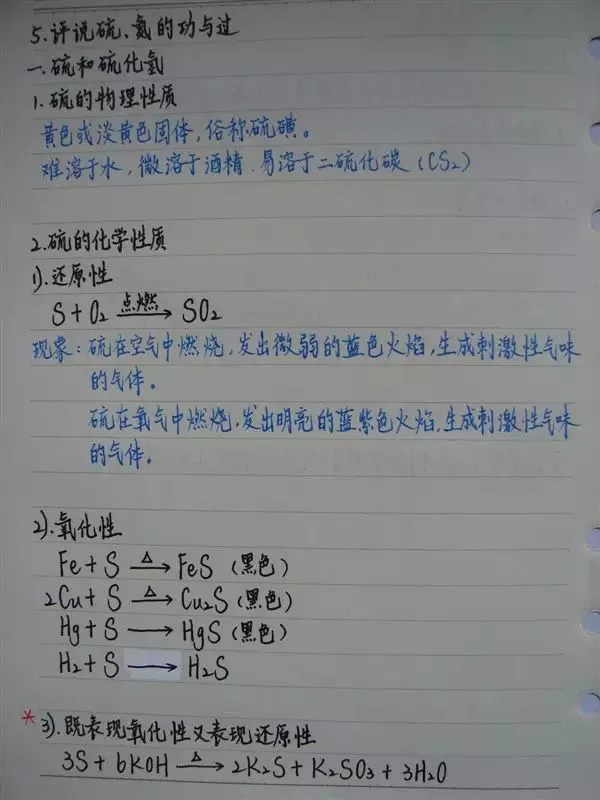 5.评说硫、氮的功与过
一.硫和硫化氢
1.硫的物理性质
黄色或淡黄色固体，俗称硫磺。
难溶于水，微溶于酒精.易溶于二硫化碳（CS₂）
2.硫的化学性质
1).还原性
S+O₂ 点燃→ SO₂
现象：硫在空气中燃烧，发出微弱的蓝色火焰，生成刺激性气味
的气体。
硫在氧气中燃烧，发出明亮的蓝紫色火焰，生成刺激性气味
的气体。
2).氧化性
Fe+S △→ FeS（黑色）
2Cu+S △→ Cu₂S（黑色）
Hg+S → HgS（黑色）
H₂+S → H₂S
* 3).既表现氧化性又表现还原性
3S+6KOH △→ 2K₂S+K₂SO₃+3H₂O